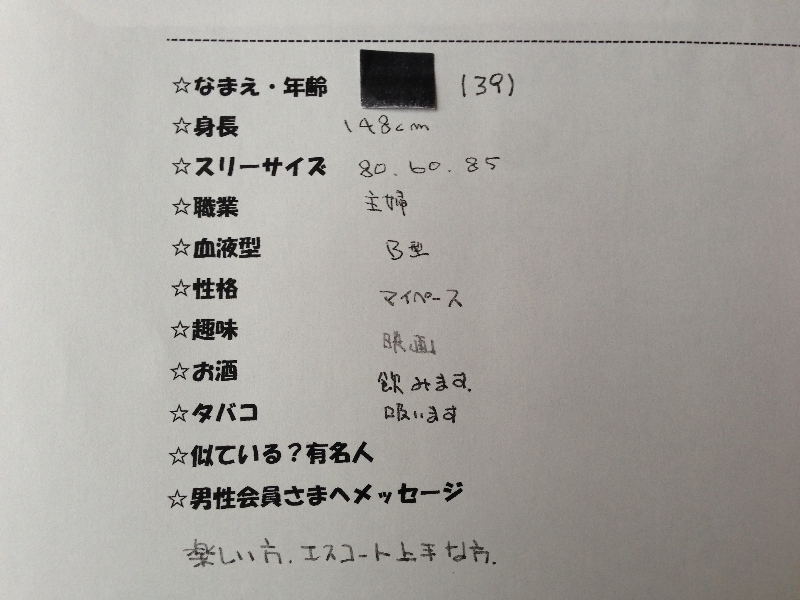 ☆なまえ・年齢 (39)
☆身長 148cm
☆スリーサイズ 80.60.85
☆職業 主婦
☆血液型 B型
☆性格 マイペース
☆趣味 映画
☆お酒 飲みます.
☆タバコ 吸います
☆似ている？有名人
☆男性会員さまへメッセージ
楽しい方.エスコート上手な方.